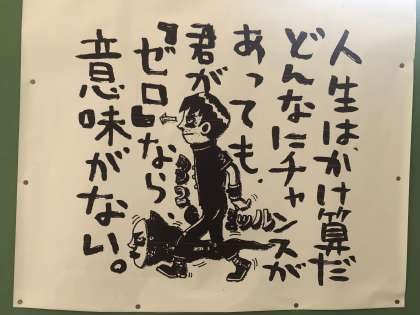 人生は、かけ算だ
どんなにチャンスが
あっても、
君が
『ゼロ』なら、
意味がない。